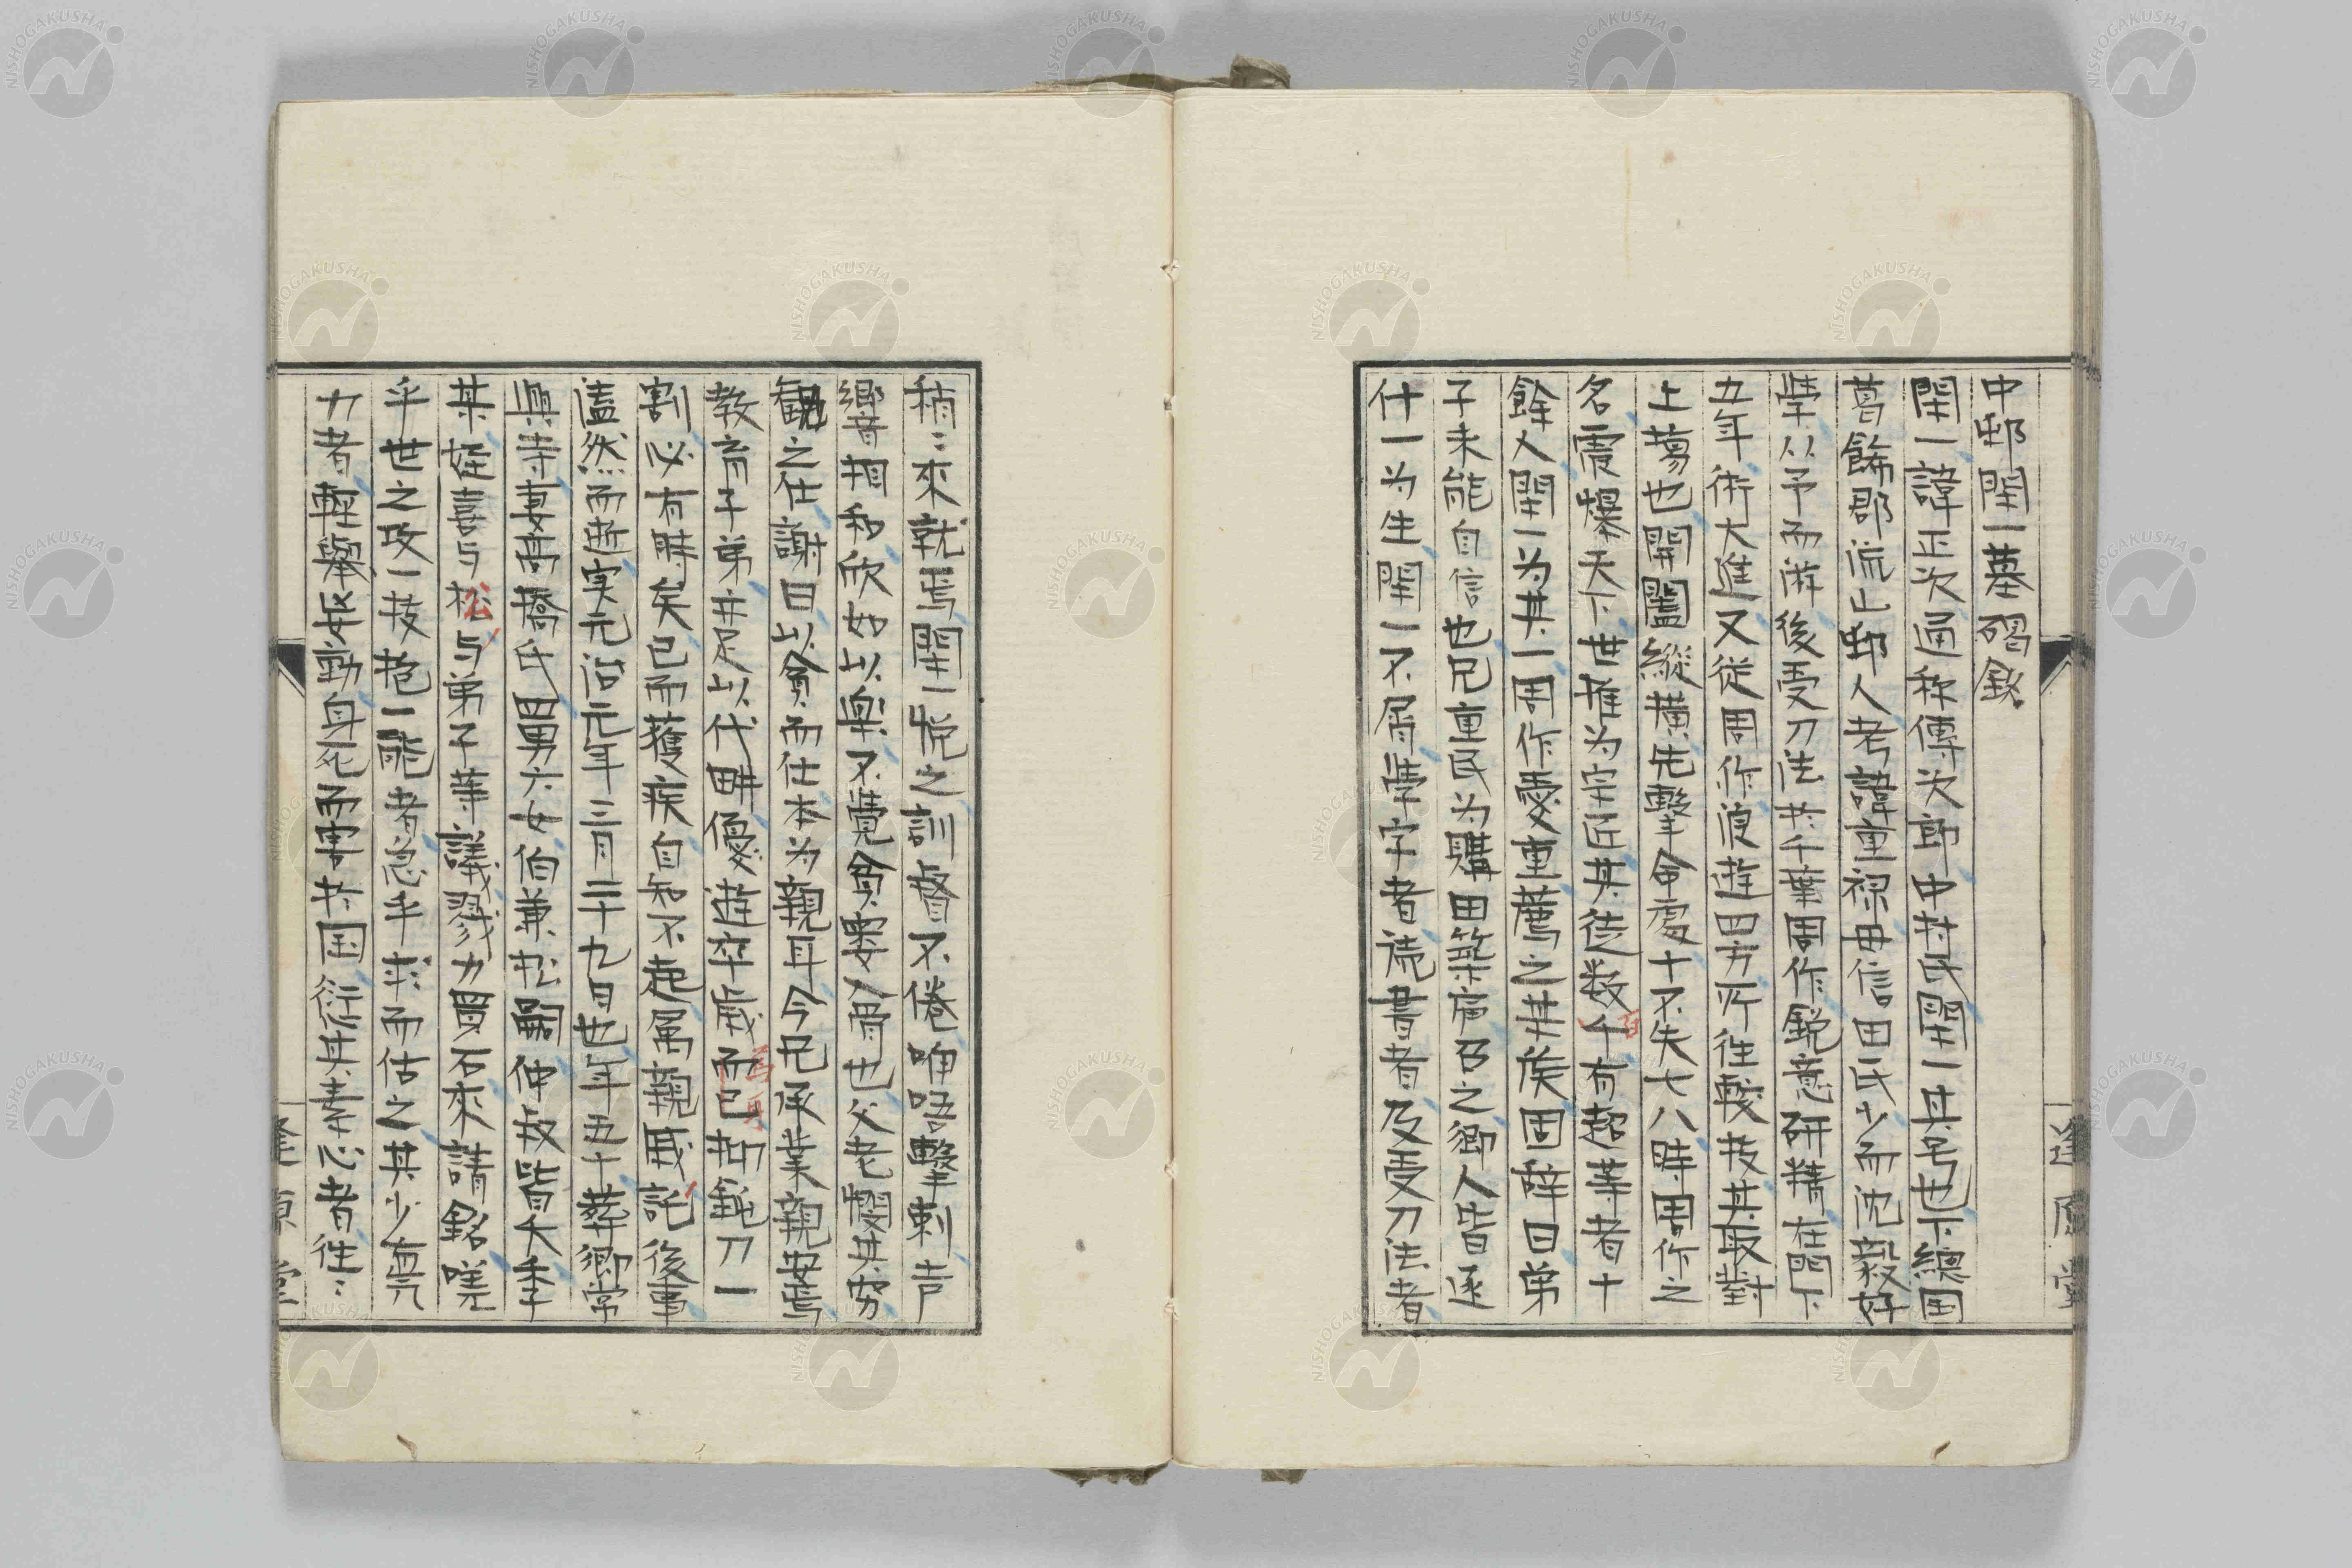 中邨開一墓碣銘
開一諱正次通称傳次郎中村氏開一其号也下總国
葛餝郡流山邨人考諱重禄母信田氏少而沈毅好
学従予而游後受刀法於千葉周作鋭意研精在門下
五年術大進又従周作復遊四方所往較技其最對
上蕩也開闔縦横先撃命處十不失七八時周作之
名震爆天下世推為宗匠其徒数千百有超等者十
餘人開一為其一周作愛重薦之其侯固辞曰弟
子未能自信也兄重民為購田築廬居之郷人皆遂
什一为生開一不屑學字者徒書者及受刀法者
稍〻來就焉開一悦之訓督不倦咿唔撃刺声
響相和欣如以楽不覺貧窶入骨也父老憫其窮
観之仕謝曰以貧而仕本为親耳今兄承業親安焉
教育子弟亦足以代畊優遊卒歳而已焉耳鉛刀一
割必有時矣已而獲疾自知不起属親戚託後事
溘然而逝実元治元年三月二十九日也年五十葬郷常
與寺妻高橋氏四男六女伯兼松嗣仲叔皆夭季
某姪喜与松公与弟子等議戮力買石來請銘嗟
乎世之攻一技抱一能者急乎求而估之其少負
力者輕擧妄動身死而害於国衍其素心者往〻
逢原堂
逢原堂